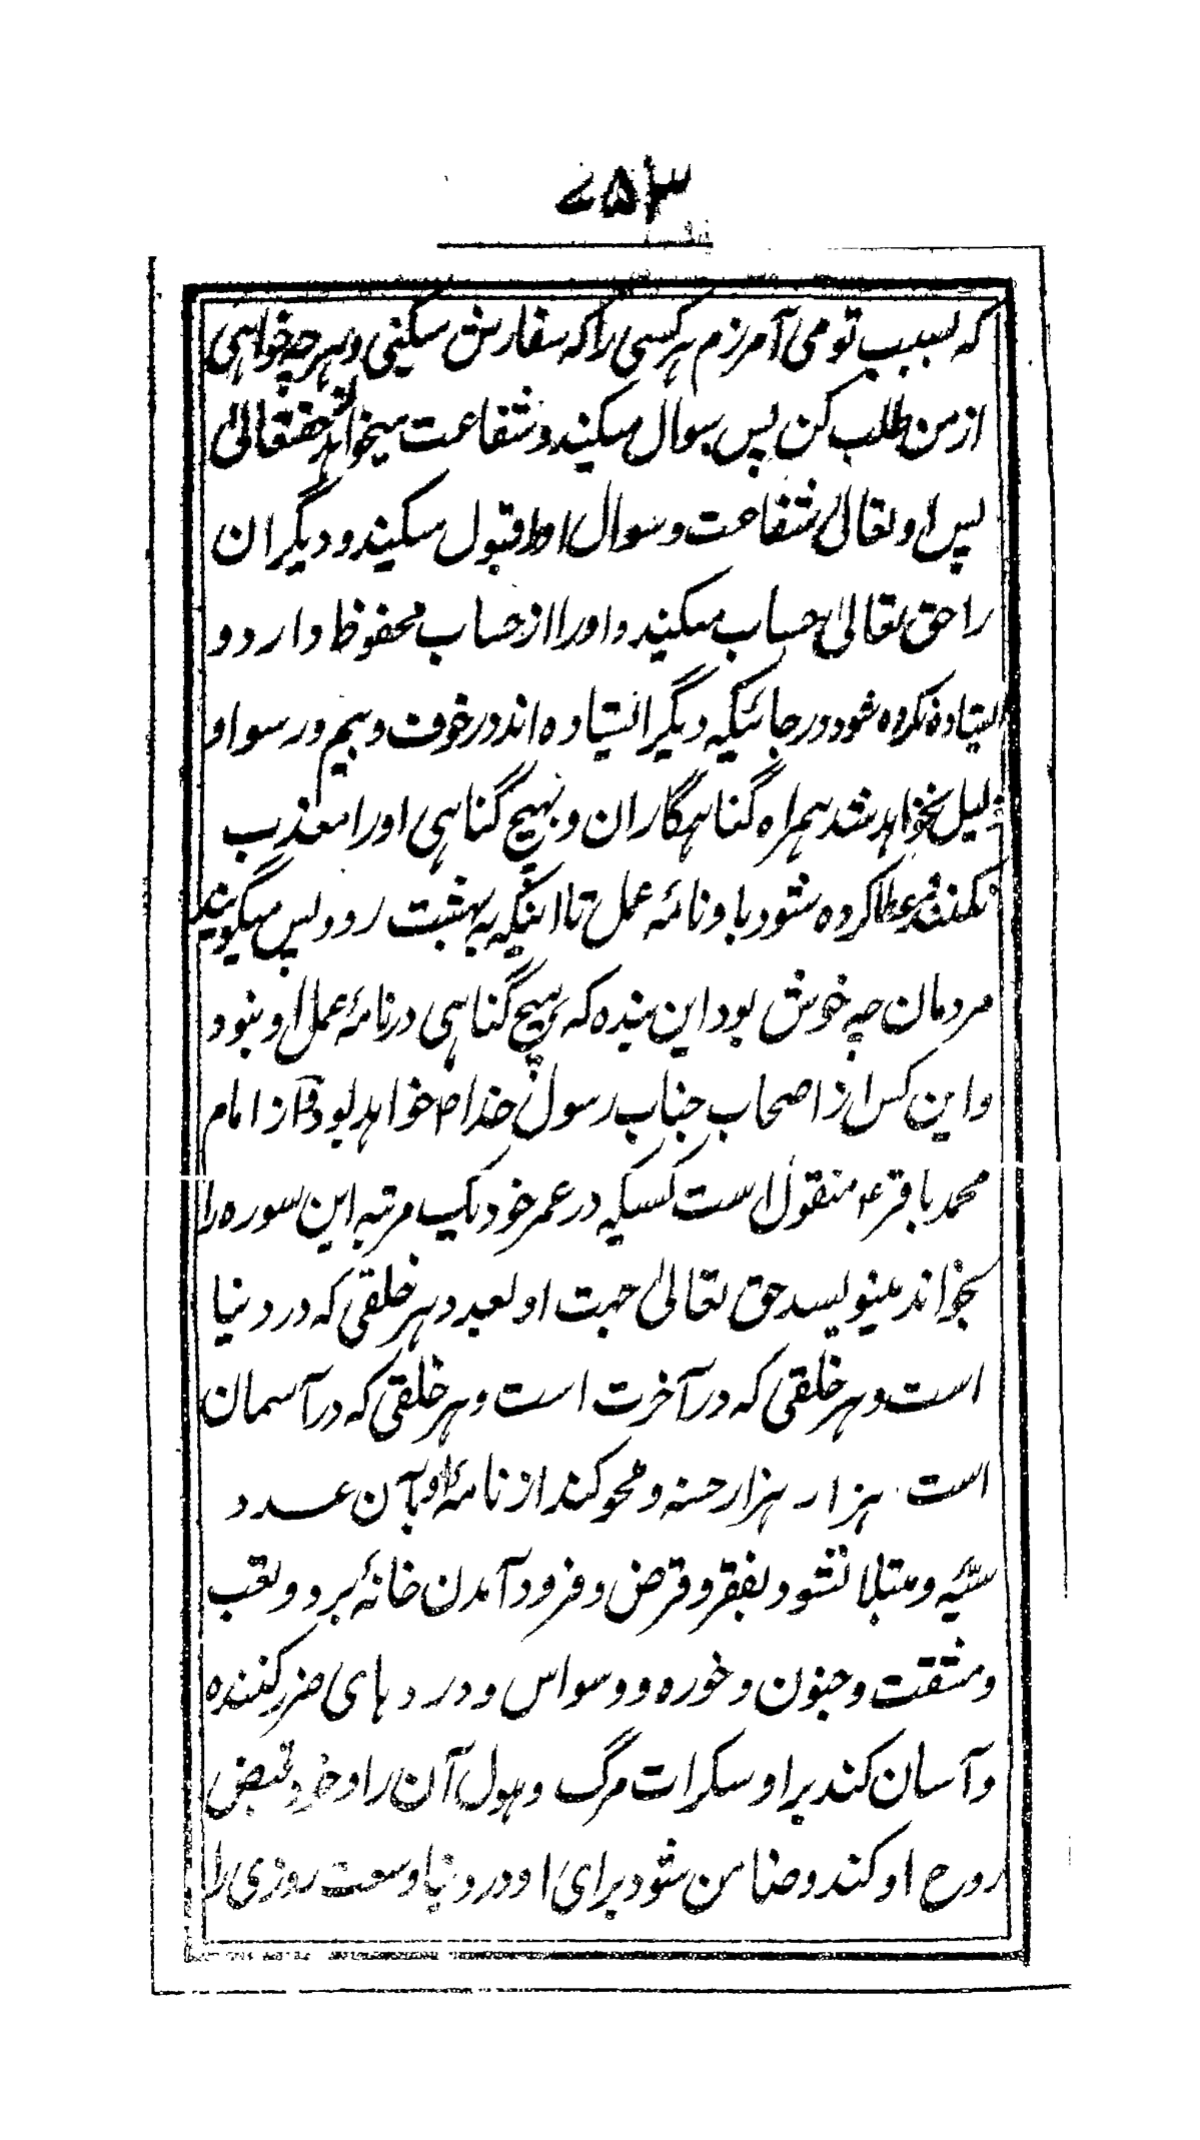 ۷۵۳
که بسبب تو می آمرزم هر کسی را که سفارش میکنی و هر چه خواهی
از من طلب کن پس سوال میکند و شفاعت میخواهد حقتعالی
پس او تعالی شفاعت و سوال او را قبول میکند و دیگران
را حق تعالی حساب میکند و او را از حساب محفوظ دارد و
ایستاده نکرده شود در جائیکه دیگر ایستاده اند در خوف و بیم و رسوا و
ذلیل نخواهد شد همراه گناهگاران و بهیچ گناهی او را معذب
نکنند و عطا کرده شود باو نامهٔ عمل تا اینکه به بهشت رود پس میگویند
مردمان چه خوش بود این بنده که هیچ گناهی در نامهٔ عمل او نبود
و این کس از اصحاب جناب رسول خدا ص خواهد بود و از امام
محمد باقر ع منقول است کسیکه در عمر خود یک مرتبه این سوره را
بخواند مینویسد حق تعالی جهت او بعدد هر خلقی که در دنیا
است و هر خلقی که در آخرت است و هر خلقی که در آسمان
است هزار هزار حسنه و محو کند از نامهٔ او بآن عدد
سیئه و مبتلا نشود بفقر و قرض و فرود آمدن خانهٔ برو و تعب
و مشقت و جنون و خوره و وسواس و دردهای ضرر کننده
و آسان کند براو سکرات مرگ و هول آن را و خود قبض
روح او کند و ضامن شود برای او در دنیا وسعت روزی را